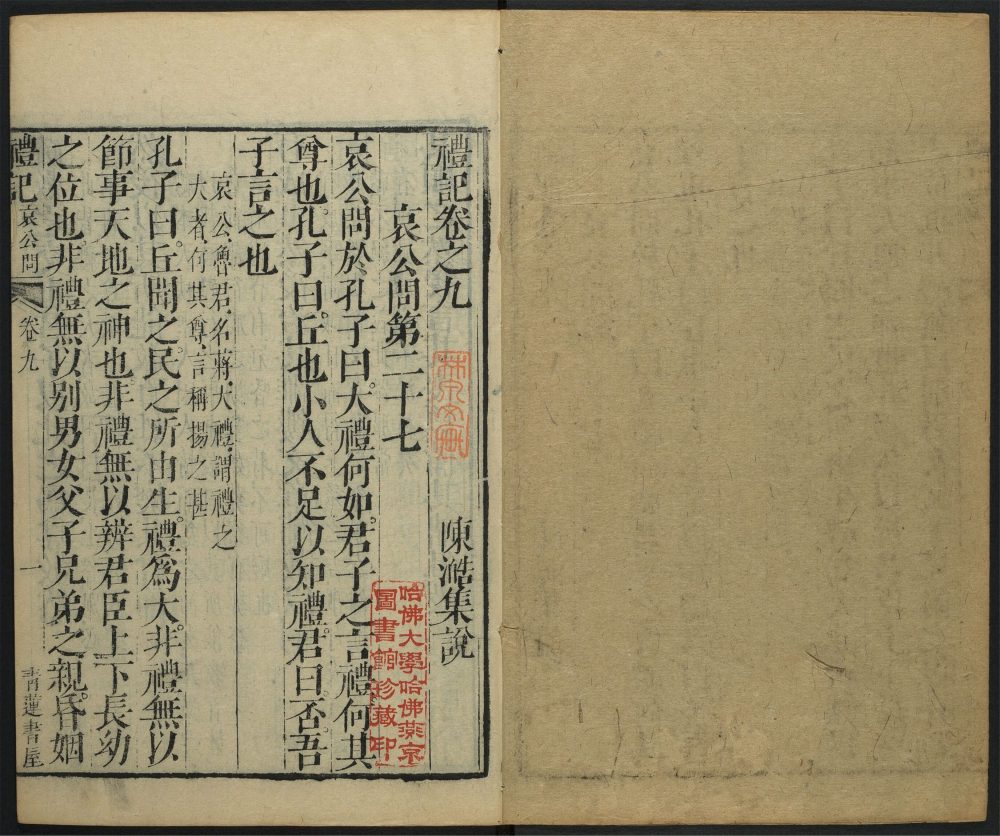 禮記卷之九
陳澔集說
哀公問第二十七
哀公問於孔子曰大禮何如君子之言禮何其
尊也孔子曰丘也小人不足以知禮君曰否吾
子言之也
哀公魯君名蔣大禮謂禮之
大者何其尊言稱揚之甚
孔子曰丘聞之民之所由生禮爲大非禮無以
節事天地之神也非禮無以辨君臣上下長幼
之位也非禮無以别男女父子兄弟之親昏姻
禮記
哀公問
卷九
一
青蓮書屋
哈佛大學哈佛燕京
圖書館珍藏印